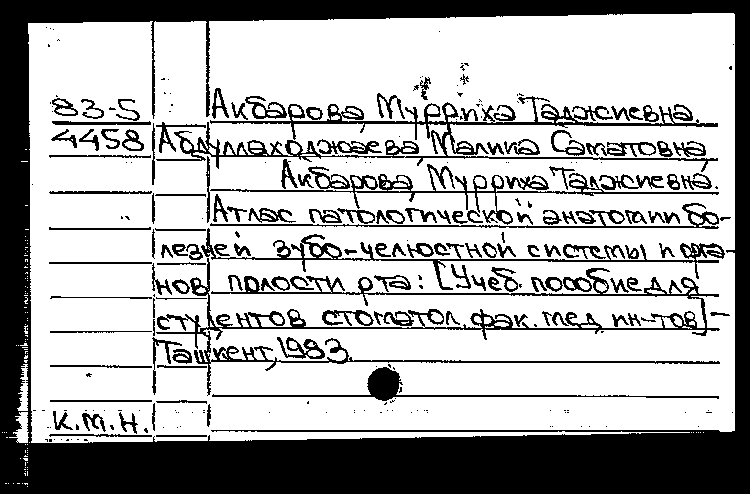 83-5 Акбарова Муррихa Таджиевна.
4458 Абдуллаходжаева Малика Саматовна,
Акбарова Муррихa Таджиевна.
Атлас патологической анатомии бо-
лезней зубо-челюстной системы и орга-
нов полости рта: [Учеб. пособие для
студентов стоматол. фак. мед. ин-тов] -
Ташкент, 1983.
к.м.н.